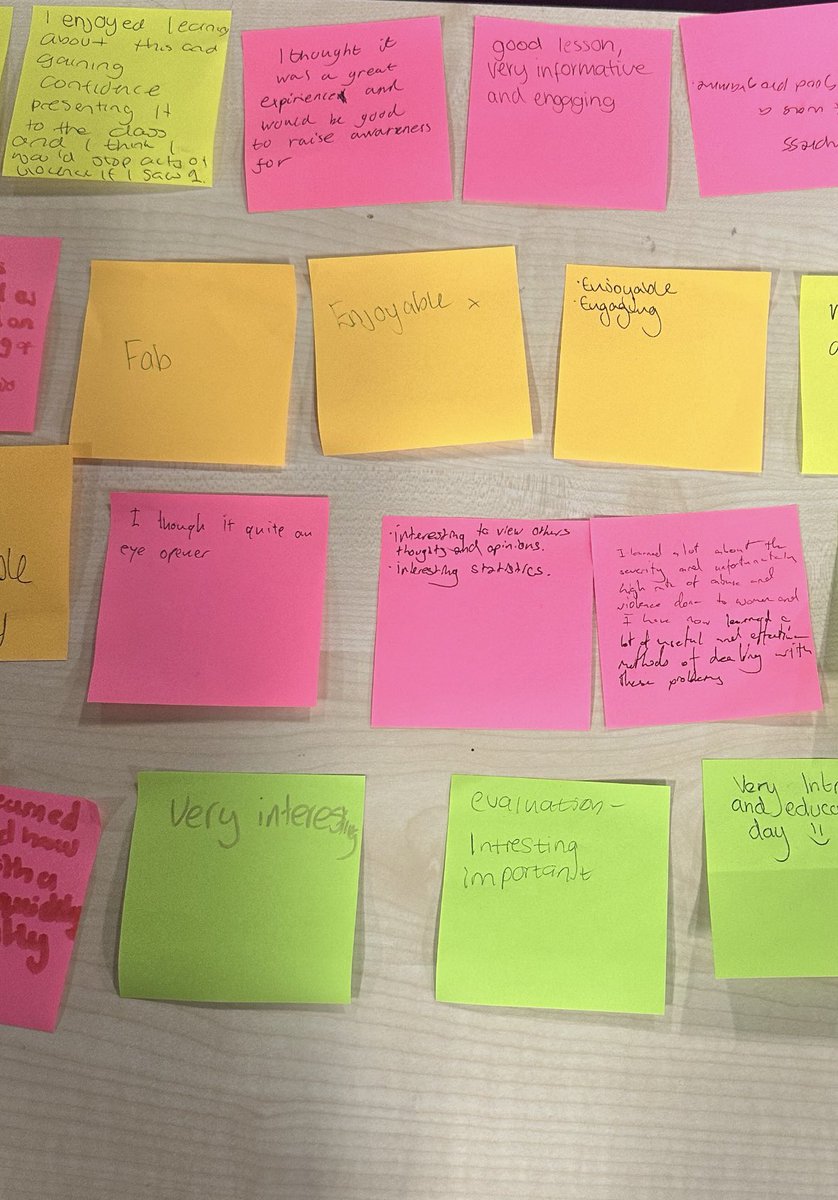 I enjoyed learning
about this and
gaining
confidence
presenting it
to the class
and I think I
would stop acts of
violence if I saw 1.
I thought it
was a great
experience and
would be good
to raise awareness
for
good lesson,
very informative
and engaging
good programme.
was a
Fab
Enjoyable x
·Enjoyable
·Engaging
I though it quite an
eye opener
·interesting to view others
thoughts and opinions.
·interesting statistics.
I learned a lot about the
severity and unfortunately
high rate of abuse and
violence done to women and
I have now learned a
lot of useful and effective
methods of dealing with
these problems
Very interesting
evaluation-
Intresting
important
Very Intr
and educa
day